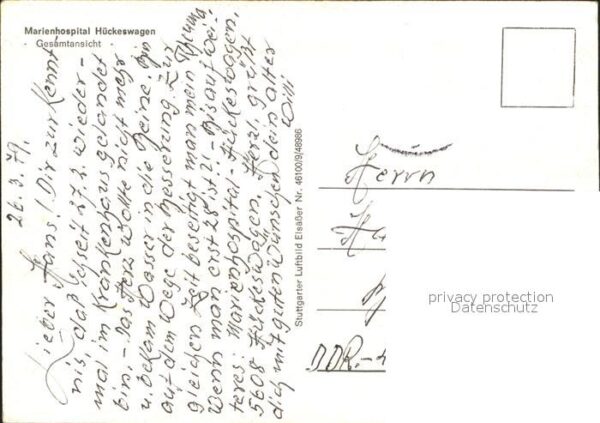 Marienhospital Hückeswagen
Gesamtansicht
26.3.79.
Lieber Hans! Dir zur Kennt-
nis, daß ich seit 27.2. wieder-
mal im Krankenhaus gelandet
bin. - Das Herz wollte nicht mehr
u. bekam Wasser in die Beine. Bin
auf dem Wege der Besserung. Zur
gleichen Zeit beseitigt man mein
wenn man erst 28 ist!! - Bis auf wei-
teres: Marienhospital-Hückeswagen,
5608 Hückeswagen. Herzl. grüßt
dich mit guten Wünschen dein alter
Willi
Stuttgarter Luftbild Elsäßer Nr. 46100/9/48986
Herrn
DDR.-
privacy protection
Datenschutz